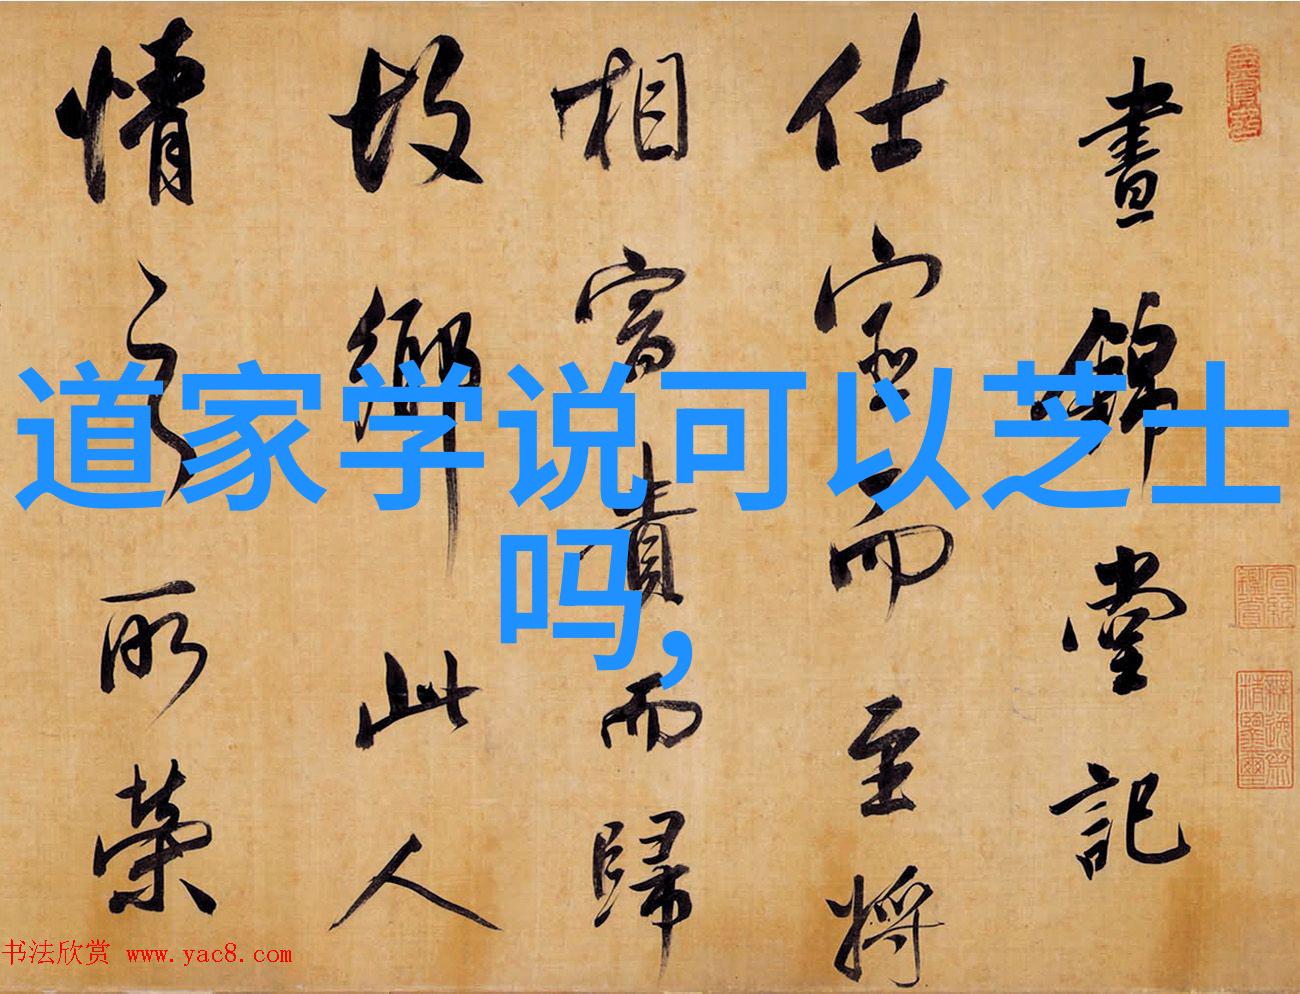 道家学说可以芝士
吗,
晝錦堂記
仕宦而至將
相富貴而歸
故鄉此人
情之所榮
书法欣赏 www.yac8.com